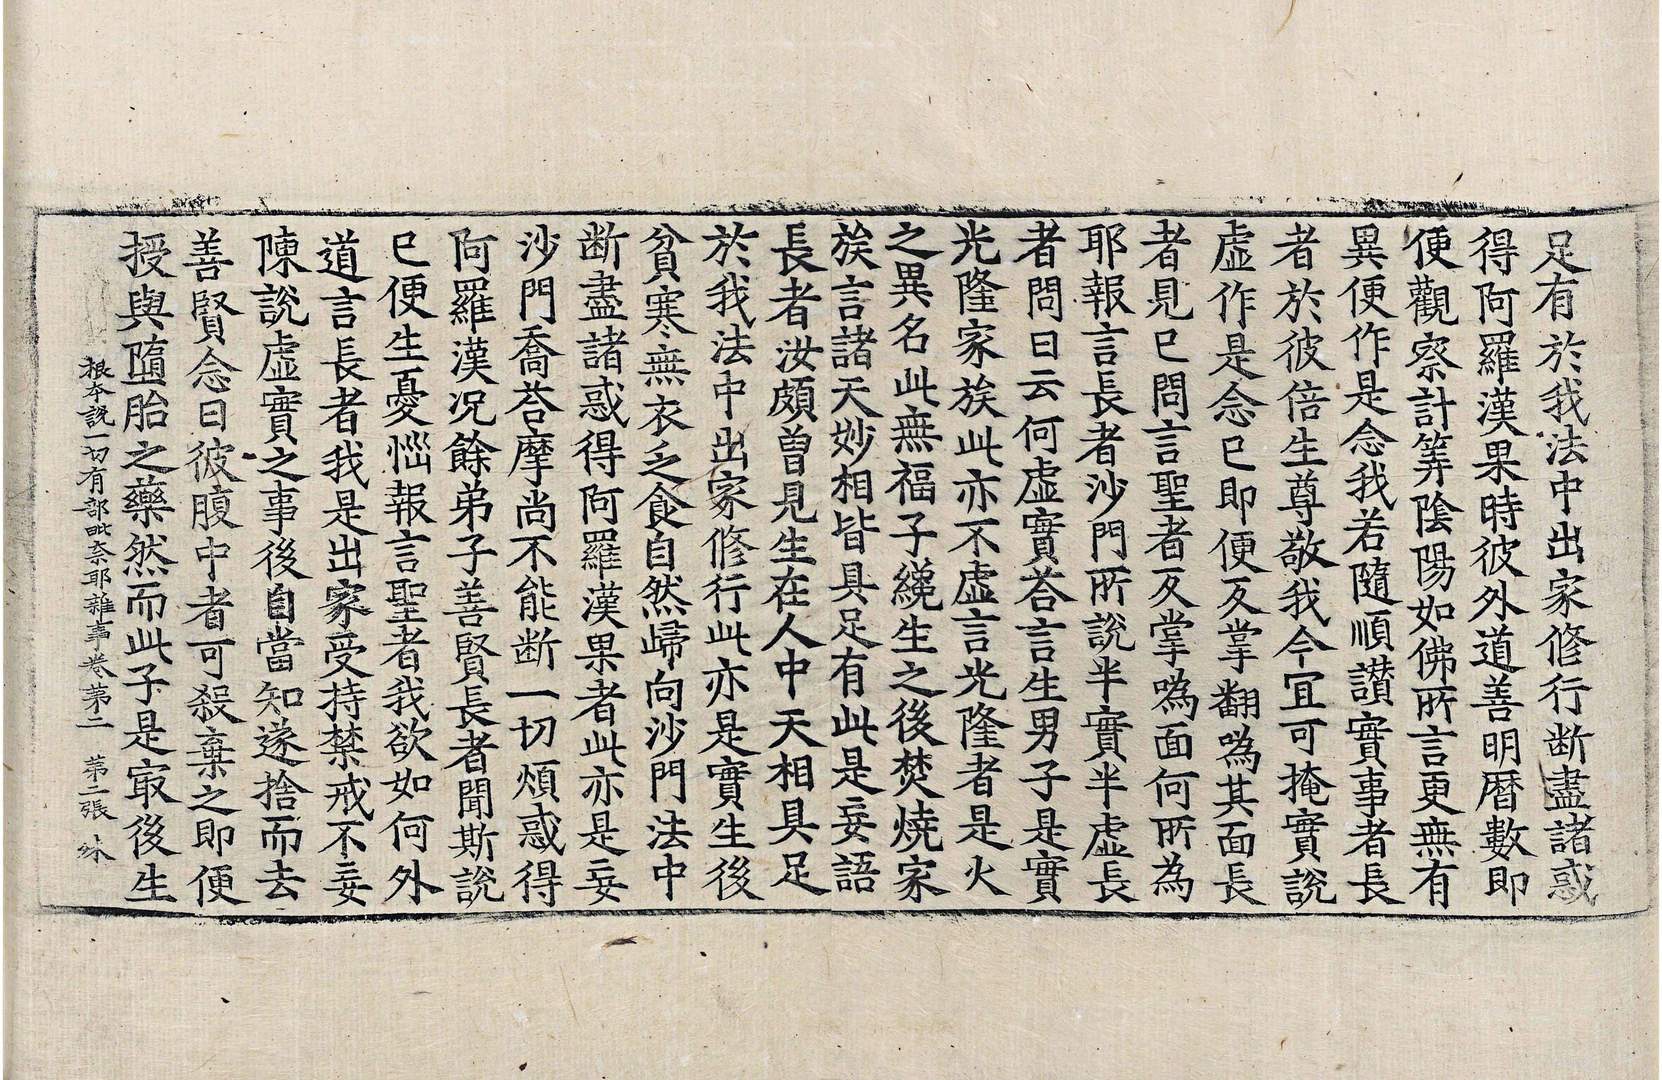 足有於我法中出家修行断盡諸惑
得阿羅漢果時彼外道善明曆數即
便觀察計筭隂陽如佛所言更無有
異便作是念我若隨順讃實事者長
者於彼倍生尊敬我今冝可掩實說
虛作是念已即便反掌翻㗲其面長
者見已問言聖者反掌㗲面何所為
耶報言長者沙門所說半實半虛長
者問曰云何虛實荅言生男子是實
光隆家族此亦不虛言光隆者是火
之異名此無福子纔生之後焚燒家
族言諸天妙相皆具足有此是妄語
長者汝頗曽見生在人中天相具足
於我法中出家修行此亦是實生後
貧寒無衣乏食自然歸向沙門法中
断盡諸惑得阿羅漢果者此亦是妄
沙門喬荅摩尚不能断一切煩惑得
阿羅漢况餘弟子善賢長者聞斯說
已便生憂惱報言聖者我欲如何外
道言長者我是出家受持禁戒不妄
陳說虛實之事後自當知遂捨而去
善賢念曰彼腹中者可殺棄之即便
授與墮胎之藥然而此子是㝡後生
根本說一切有部毗奈耶雜事卷苐二 苐二張